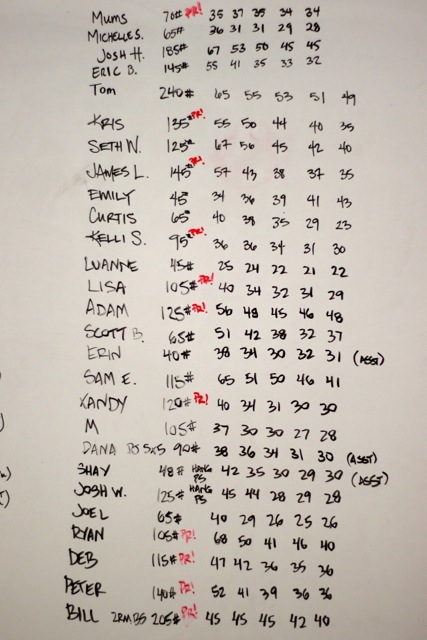 Mums 70# PR! 35 37 35 34 34
MICHELLE S. 65# 36 31 31 29 28
JOSH H. 185# 67 53 50 45 45
ERIC B. 145# 55 41 35 33 32
Tom 240# 65 55 53 51 49
KRIS 135# PR! 55 50 44 40 35
SETH W. 125# 67 56 45 42 40
JAMES L. 145# PR! 57 43 38 37 35
EMILY 45# 34 36 39 41 43
CURTIS 65# 40 38 35 29 23
KELLI S. 95# PR! 36 36 34 31 30
LUANNE 45# 25 24 22 21 22
LISA 105# PR! 40 34 32 31 29
ADAM 125# PR! 56 48 45 46 48
SCOTT B. 65# 51 42 38 32 37
ERIN 40# 38 34 30 32 31 (ASST)
SAM E. 115# 65 51 50 46 41
XANDY 120# PR! 40 34 31 30 30
M 105# 37 30 30 27 28
DANA BS 5x5 90# 38 36 34 31 30 (ASST)
SHAY 48# HANG PS 42 35 30 29 30 (ASST)
JOSH W. 125# HANG PS 45 44 28 29 28
JOEL 65# 40 29 26 25 26
RYAN 105# PR! 68 50 41 46 40
DEB 115# PR! 47 42 36 35 36
PETER 140# PR! 52 41 39 36 36
BILL 2RM BS 205# PR! 45 45 45 42 40